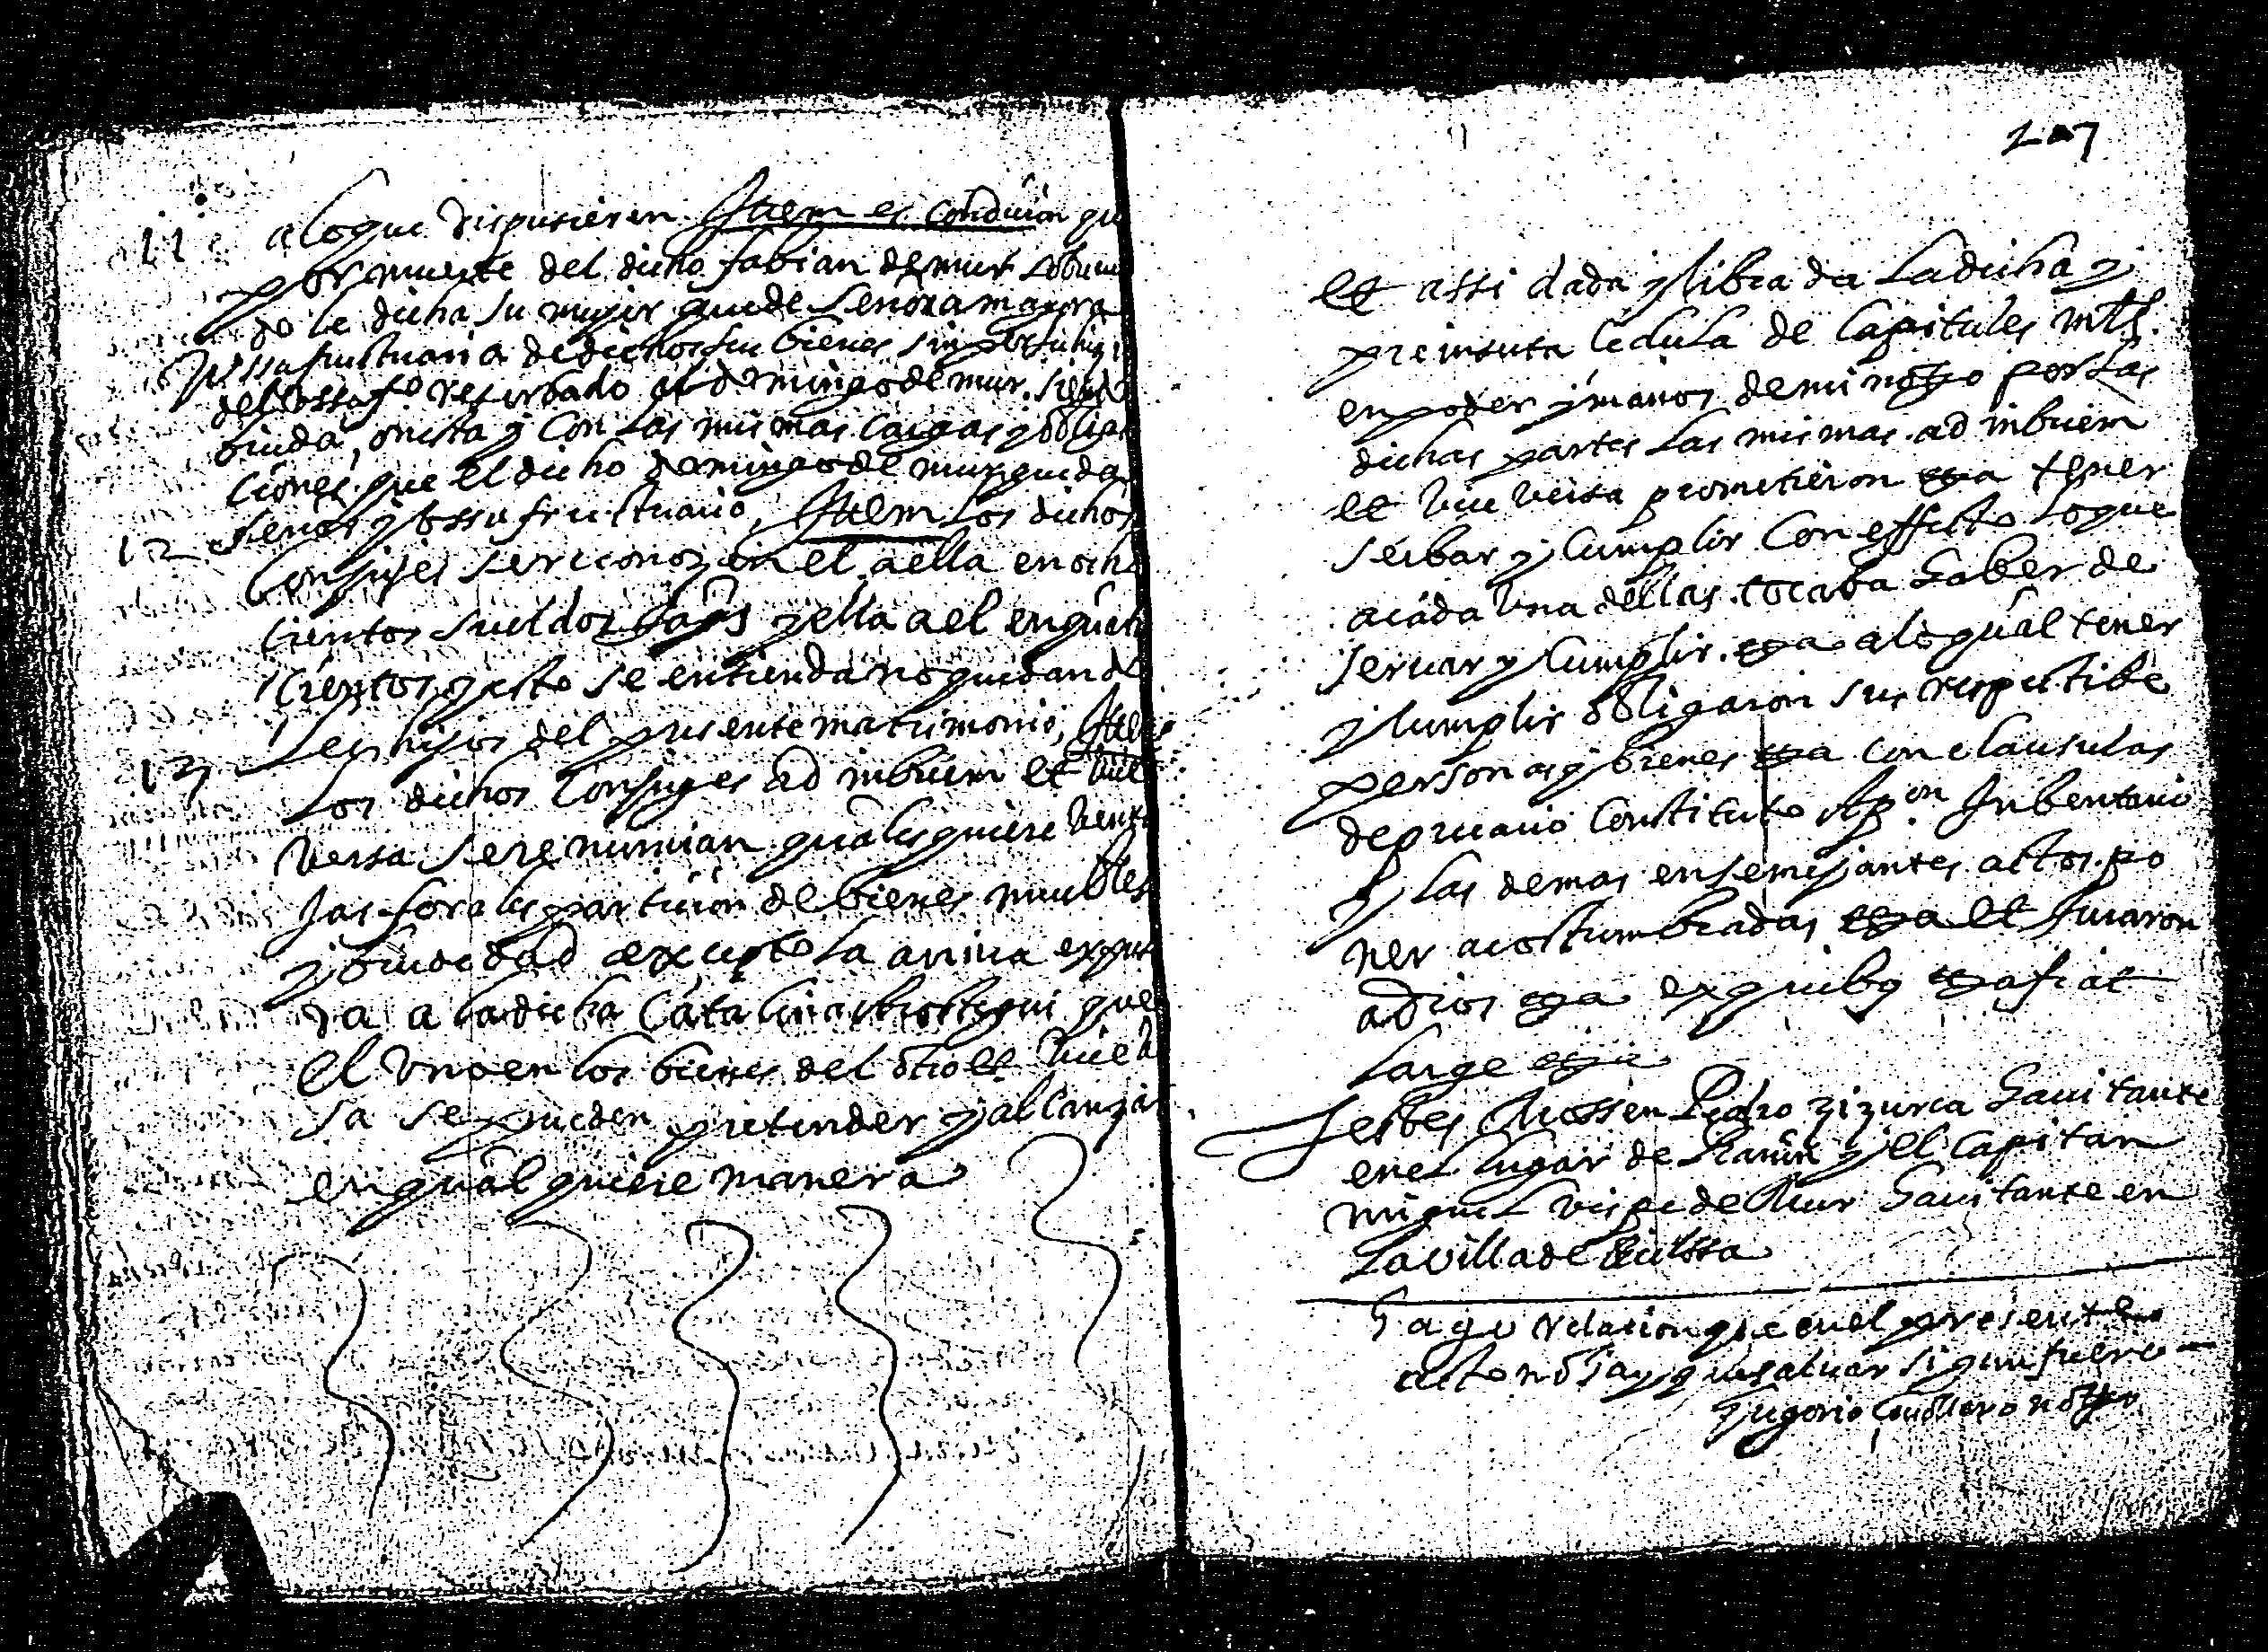 11 a lo que dispusieren Item es condicion que
por muerte del dicho fabian de mur
do le dicha su mujer quede senora mayora
ussufructuaria de dichos sus bienes sin
del ussuf.o reserbado al domingo de mur. siendo
biuda, onesta y con las mismas cargas y obliga
ciones que el dicho domingo de mur queda
12 senor y ussufructuario, Item los dichos
Conjuges se reconozen el a ella en ocho
cientos sueldos Jaqs y ella a el en quatro
cientos y esto se entienda no quedando
13 les hijos del presente matrimonio, Item
Los dichos Conjuges ad inbicem et vice
versa se renuncian qualesquiere venta
Jas forales particion de bienes muebles
y biudedad excepto la arriba expresa
da a la dicha Catalina que
el uno en los bienes del otro et vice ver
sa se pueden pretender y alcanzar
en qualquiere manera
207
et assi dada y librada La dicha y
preinserta Cedula de Capitules mtls.
en poder y manos de mi noto por las
dichas partes Las mismas ad inbicem
et vice versa prometieron tener
serbar y Cumplir Con effecto Lo que
a cada una dellas tocaba haber de
servar y Cumplir a lo qual tener
y Cumplir obligaron sus respectibe
personas y bienes con clausulas
de precario Constituto Apon Inbentario
y las demas en semejantes actos po
ner acostumbradas et Juraron
a dios ex quibus fiat
Large
Testes Mossen Pedro zizurca havitante
en el Lugar de y el Capitan
miguel vispe de Mur havitante en
La villa de
hago relacion que en el presente
acto no hay que saluar sigun fuero
Gregorio noto